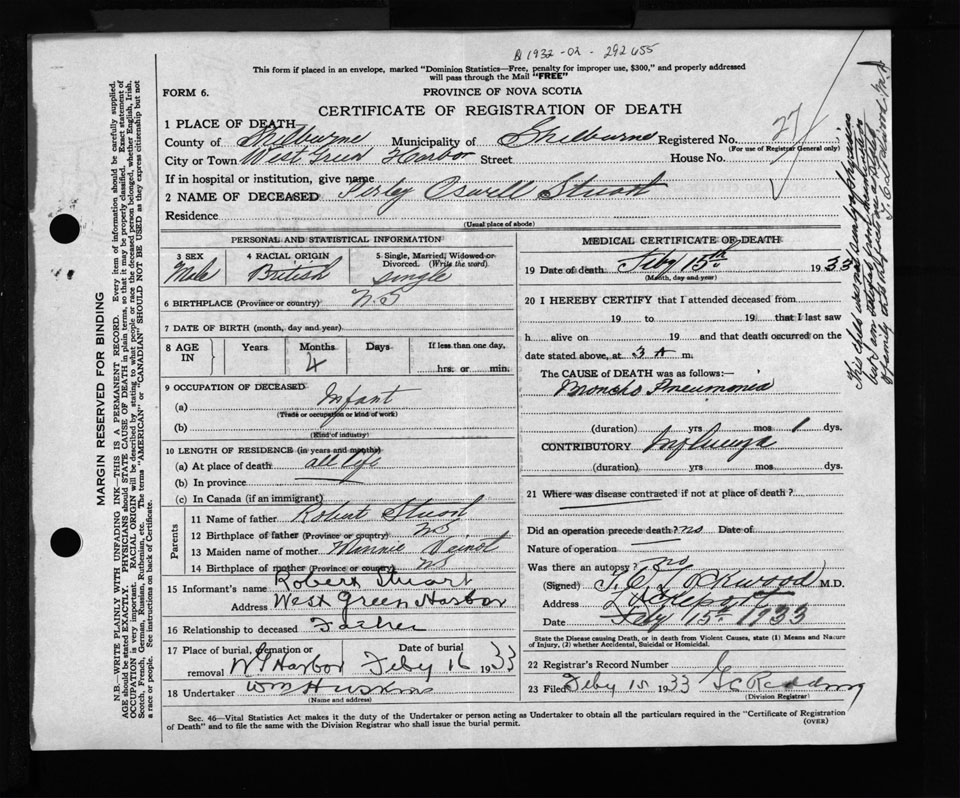 B 1932 - 02 - 292455
This form if placed in an envelope, marked "Dominion Statistics—Free, penalty for improper use, $300," and properly addressed
will pass through the Mail "FREE"
FORM 6.
PROVINCE OF NOVA SCOTIA
CERTIFICATE OF REGISTRATION OF DEATH
1 PLACE OF DEATH
County of Shelburne Municipality of Shelburne Registered No. 27
(For use of Registrar General only)
City or Town West Green Harbor Street House No.
If in hospital or institution, give name
2 NAME OF DECEASED Perley Oswell Stuart
Residence
(Usual place of abode)
PERSONAL AND STATISTICAL INFORMATION
3 SEX Male
4 RACIAL ORIGIN British
5 Single, Married, Widowed or Divorced. (Write the word.) Single
6 BIRTHPLACE (Province or county) N S
7 DATE OF BIRTH (month, day and year)
8 AGE IN Years Months 4 Days If less than one day, hrs. or min.
9 OCCUPATION OF DECEASED
(a) Infant
(Trade or occupation or kind of work)
(b)
(Kind of industry)
10 LENGTH OF RESIDENCE (in years and months)
(a) At place of death all life
(b) In province
(c) In Canada (if an immigrant)
Parents
11 Name of father Robert Stuart
12 Birthplace of father (Province or country) NS
13 Maiden name of mother Minnie
14 Birthplace of mother (Province or country) NS
15 Informant's name Robert Stuart
Address West Green Harbor
16 Relationship to deceased Father
17 Place of burial, or removal W G Harbor Date of burial Feby 16 1933
18 Undertaker Wm Huskins
(Name and address)
MEDICAL CERTIFICATE OF DEATH
19 Date of death Feby 15th 1933
(Month, day and year)
20 I HEREBY CERTIFY that I attended deceased from
19 to 19 that I last saw
h alive on 19 and that death occurred on the
date stated above, at 3 A m.
The CAUSE of DEATH was as follows:
Broncho Pneumonia
(duration) yrs mos 1 dys.
CONTRIBUTORY Influenza
(duration) yrs mos dys.
21 Where was disease contracted if not at place of death?
Did an operation precede death? no Date of
Nature of operation
Was there an autopsy? no
(Signed) L. E. Lockwood M.D.
Address Lockeport
Date Feby 15th 1933
State the Disease causing Death, or in death from Violent Causes, state (1) Means and Nature
of Injury, (2) whether Accidental, Suicidal or Homicidal.
22 Registrar's Record Number
23 Filed Feby 15 1933
(Division Registrar)
Sec. 46—Vital Statistics Act makes it the duty of the Undertaker or person acting as Undertaker to obtain all the particulars required in the "Certificate of Registration
of Death" and to file the same with the Division Registrar who shall issue the burial permit.
(OVER)
MARGIN RESERVED FOR BINDING
N.B.—WRITE PLAINLY WITH UNFADING INK—THIS IS A PERMANENT RECORD. Every item of information should be carefully supplied.
AGE should be stated EXACTLY. PHYSICIANS should STATE CAUSE OF DEATH in plain terms, so that it may be properly classified. Exact statement of
OCCUPATION is very important. RACIAL ORIGIN will be described by stating to what people or race the deceased person belonged, whether English, Irish,
Scotch, French, German, Russian, Ruthenian, etc. The terms "AMERICAN" or "CANADIAN" SHOULD NOT BE USED as they express citizenship but not
a race or people. See instructions on back of Certificate.
This child was not seen by physician